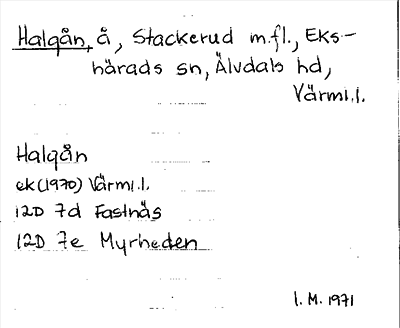 Halgån, å, Stackerud m.fl., Eks-
härads sn, Älvdals hd,
Värml.l.
Halgån
ek(1970) Värml.l.
12D 7d Fastnäs
12D 7e Myrheden
I.M. 1971